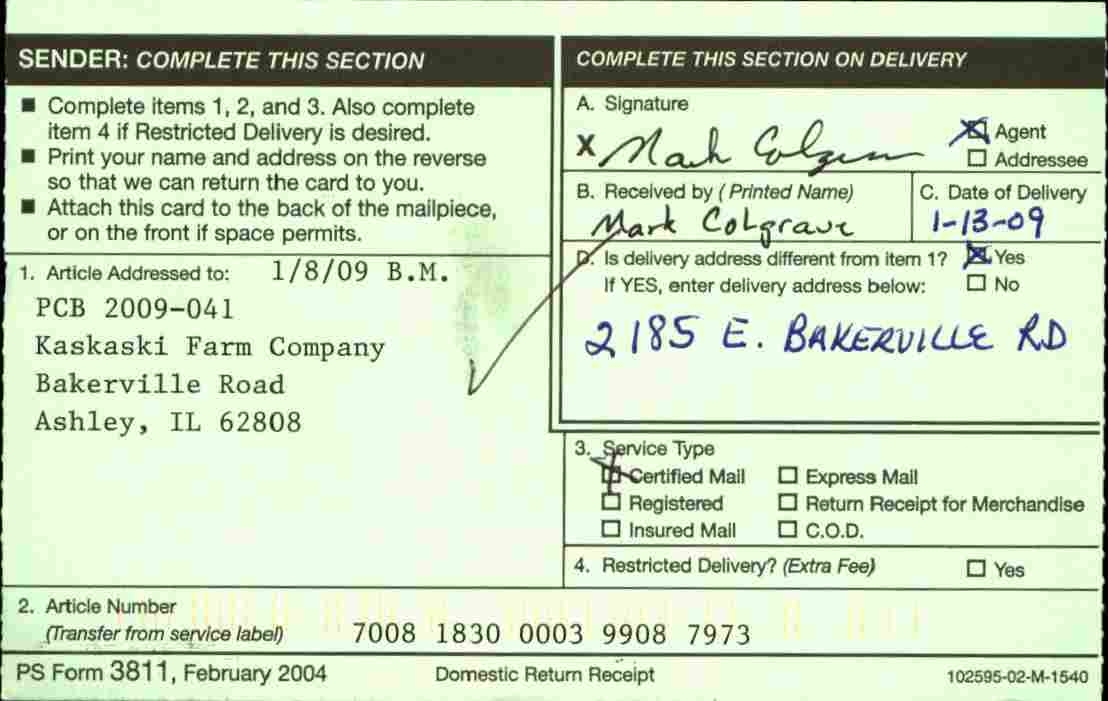 SENDER: COMPLETE THIS SECTION
■ Complete items 1, 2, and 3. Also complete
item 4 if Restricted Delivery is desired.
■ Print your name and address on the reverse
so that we can return the card to you.
■ Attach this card to the back of the mailpiece,
or on the front if space permits.
1. Article Addressed to: 1/8/09 B.M.
PCB 2009-041
Kaskaski Farm Company
Bakerville Road
Ashley, IL 62808
COMPLETE THIS SECTION ON DELIVERY
A. Signature
X Mark Colgrave
Agent
Addressee
B. Received by (Printed Name)
Mark Colgrave
C. Date of Delivery
1-13-09
D. Is delivery address different from item 1? Yes
If YES, enter delivery address below: No
2185 E. BAKERVILLE RD
3. Service Type
Certified Mail Express Mail
Registered Return Receipt for Merchandise
Insured Mail C.O.D.
4. Restricted Delivery? (Extra Fee) Yes
2. Article Number
(Transfer from service label) 7008 1830 0003 9908 7973
PS Form 3811, February 2004 Domestic Return Receipt 102595-02-M-1540